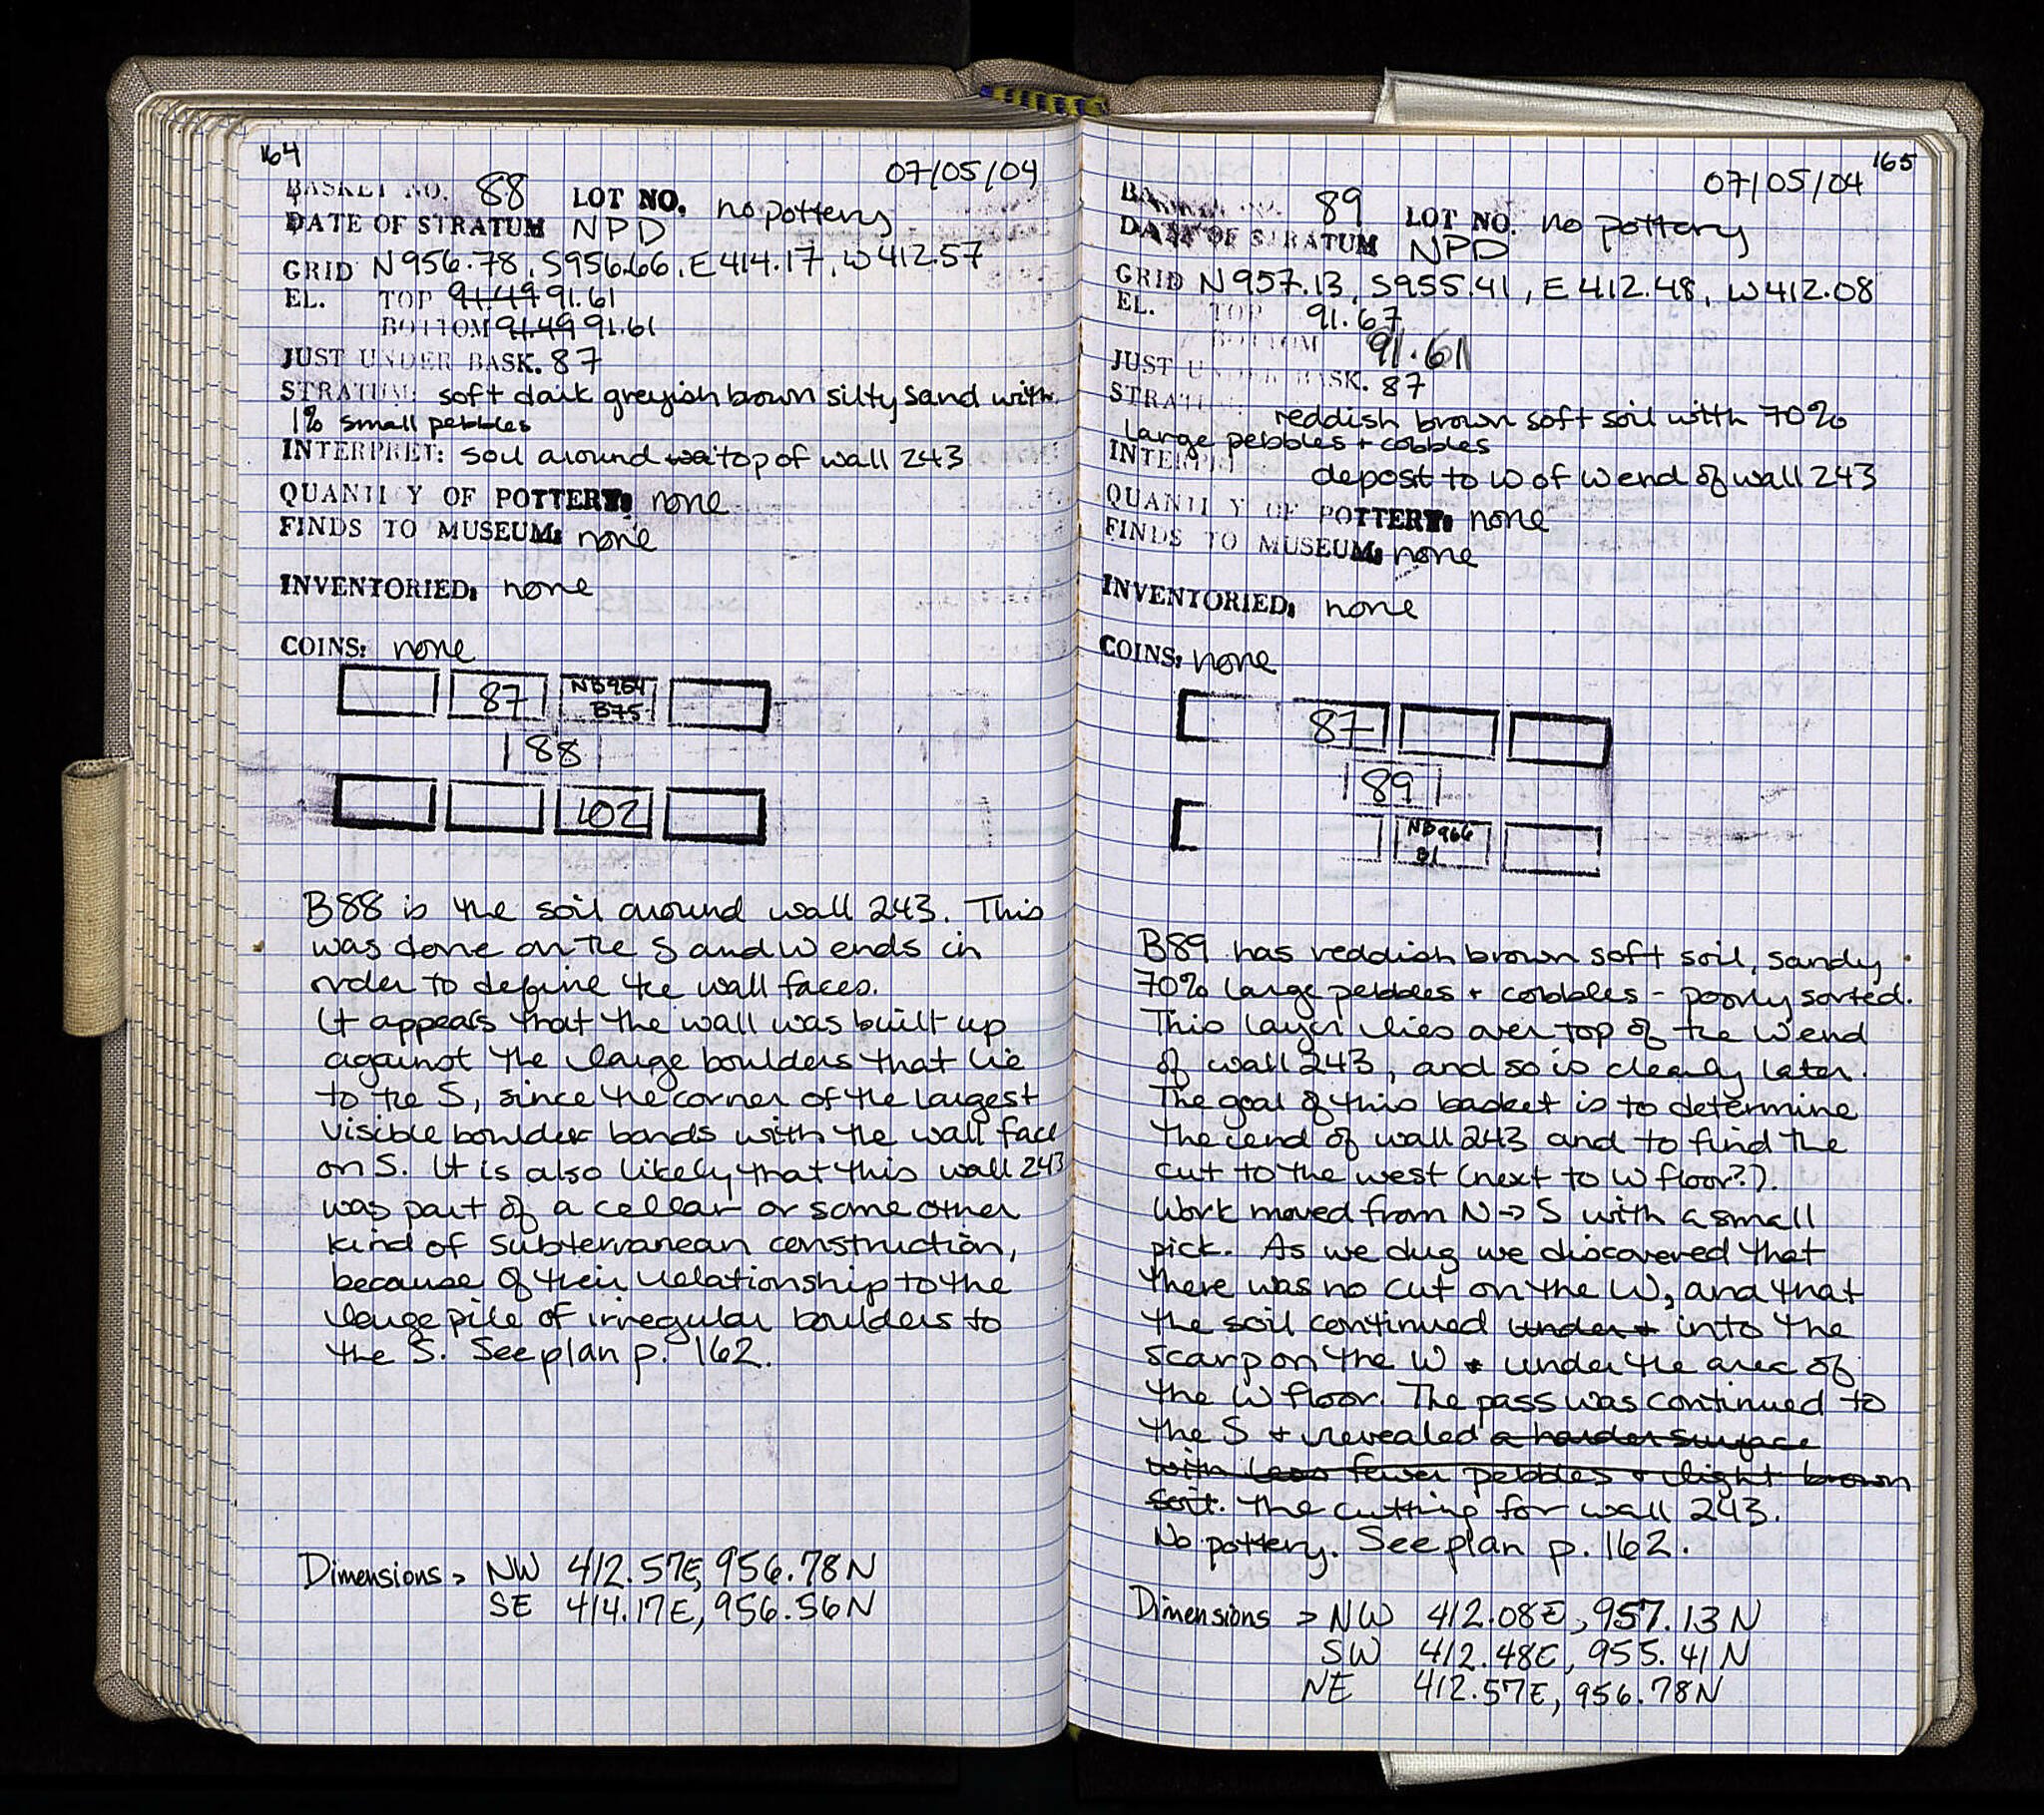 164
07/05/04
BASKET NO. 88 LOT NO. no pottery
DATE OF STRATUM NPD
GRID N956.78, S956.66, E414.17, W412.57
EL. TOP 91.49 91.61
BOTTOM 91.49 91.61
JUST UNDER BASK. 87
STRATUM: soft dark greyish brown silty sand with
1% small pebbles
INTERPRET: soil around wa top of wall 243
QUANTITY OF POTTERY: none
FINDS TO MUSEUM: none
INVENTORIED: none
COINS: none
87 NB964
B75
88
102
B88 is the soil around wall 243. This
was done on the S and W ends in
order to define the wall faces.
It appears that the wall was built up
against the large boulders that lie
to the S, since the corner of the largest
visible boulder bonds with the wall face
on S. It is also likely that this wall 243
was part of a cellar or some other
kind of subterranean construction,
because of their relationship to the
large pile of irregular boulders to
the S. See plan p. 162.
Dimensions > NW 412.57E, 956.78N
SE 414.17E, 956.56N
165
07/05/04
BASKET NO. 89 LOT NO. no pottery
DATE OF STRATUM NPD
GRID N957.13, S955.41, E412.48, W412.08
EL. TOP 91.67
BOTTOM 91.61
JUST UNDER BASK. 87
STRATUM: reddish brown soft soil with 70%
large pebbles + cobbles
INTERPRET: deposit to W of W end of wall 243
QUANTITY OF POTTERY: none
FINDS TO MUSEUM: none
INVENTORIED: none
COINS: none
87
89
NB966
B1
B89 has reddish brown soft soil, sandy
70% large pebbles + cobbles - poorly sorted.
This layer lies over top of the W end
of wall 243, and so is clearly later.
The goal of this basket is to determine
the end of wall 243 and to find the
cut to the west (next to W floor?).
Work moved from N → S with a small
pick. As we dug we discovered that
there was no cut on the W, and that
the soil continued under + into the
scarp on the W + under the area of
the W floor. The pass was continued to
the S + revealed a harder surface
with less fewer pebbles + light brown
soil. the cutting for wall 243.
No pottery. See plan p. 162.
Dimensions > NW 412.08E, 957.13N
SW 412.48E, 955.41N
NE 412.57E, 956.78N